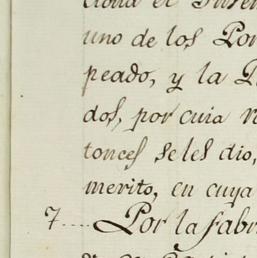 uno de los
peado, y la
dos, por cuia
tonces se les dio,
merito, en cuya
7.... Por la fabri